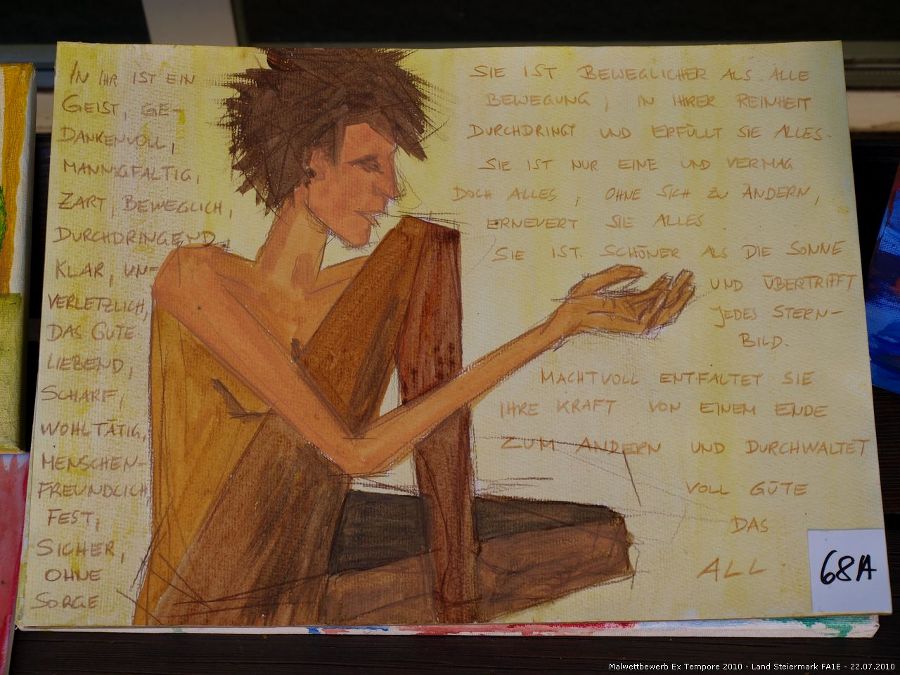 IN IHR IST EIN
GEIST, GE-
DANKENVOLL,
MANNIGFALTIG,
ZART, BEWEGLICH,
DURCHDRINGEND,
KLAR, UN-
VERLETZLICH,
DAS GUTE
LIEBEND,
SCHARF,
WOHLTÄTIG,
MENSCHEN-
FREUNDLICH
FEST,
SICHER,
OHNE
SORGE
SIE IST BEWEGLICHER ALS ALLE
BEWEGUNG; IN IHRER REINHEIT
DURCHDRINGT UND ERFÜLLT SIE ALLES.
SIE IST NUR EINE UND VERMAG
DOCH ALLES; OHNE SICH ZU ÄNDERN,
ERNEUERT SIE ALLES
SIE IST SCHÖNER ALS DIE SONNE
UND ÜBERTRIFFT
JEDES STERN-
BILD.
MACHTVOLL ENTFALTET SIE
IHRE KRAFT VON EINEM ENDE
ZUM ANDERN UND DURCHWALTET
VOLL GÜTE
DAS
ALL.
68A
Malwettbewerb Ex Tempore 2010 - Land Steiermark FA1E - 22.07.2010